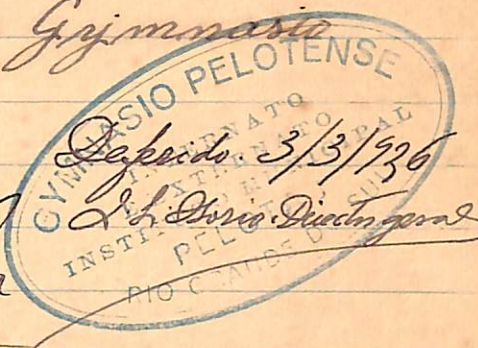 Gymnasio
GYMNASIO PELOTENSE
INTERNATO
EXTERNATO
INSTITUTO MUNICIPAL
PELOTAS
RIO GRANDE DO SUL
Deferido. 3/3/926
L. Osorio. Director geral